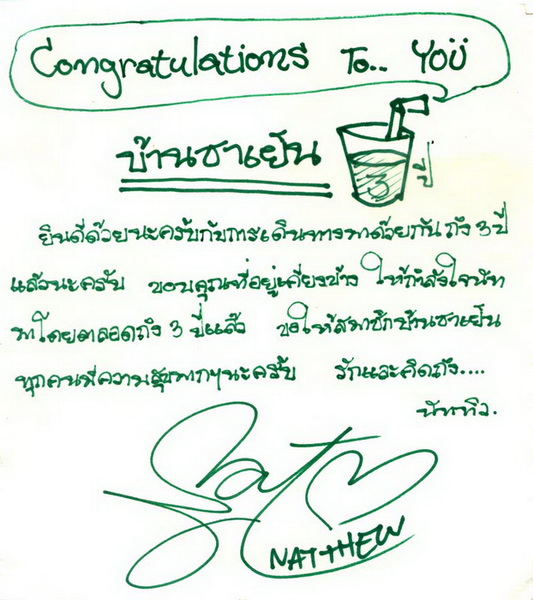 Congratulations To.. YoÜ
บ้านชาเย็น
3 ปี
ยินดีด้วยนะครับกับการเดินทางมาด้วยกันถึง 3 ปี
แล้วนะครับ ขอบคุณที่อยู่เคียงข้าง ให้กำลังใจนัท
มาโดยตลอดถึง 3 ปีแล้ว ขอให้สมาชิกบ้านชาเย็น
ทุกคนมีความสุขมากๆนะครับ รักและคิดถึง....
นัททิว.
Nat
NATTHEW